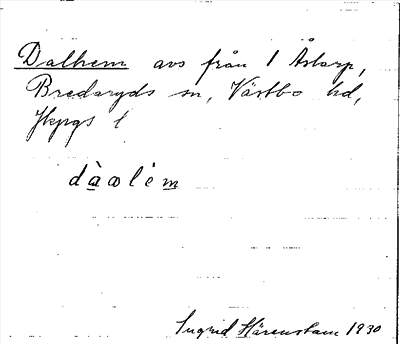 Dalhem avs från 1 Åstarp,
Bredaryds sn, Västbo hd,
Jkpgs l
dàωlèm
Ingrid Härenstam 1930